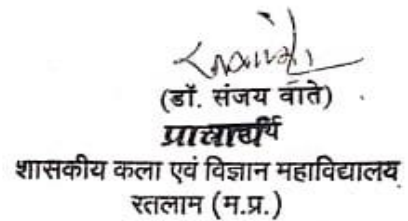 (डॉ. संजय वाते)
प्राचार्य
शासकीय कला एवं विज्ञान महाविद्यालय
रतलाम (म.प्र.)